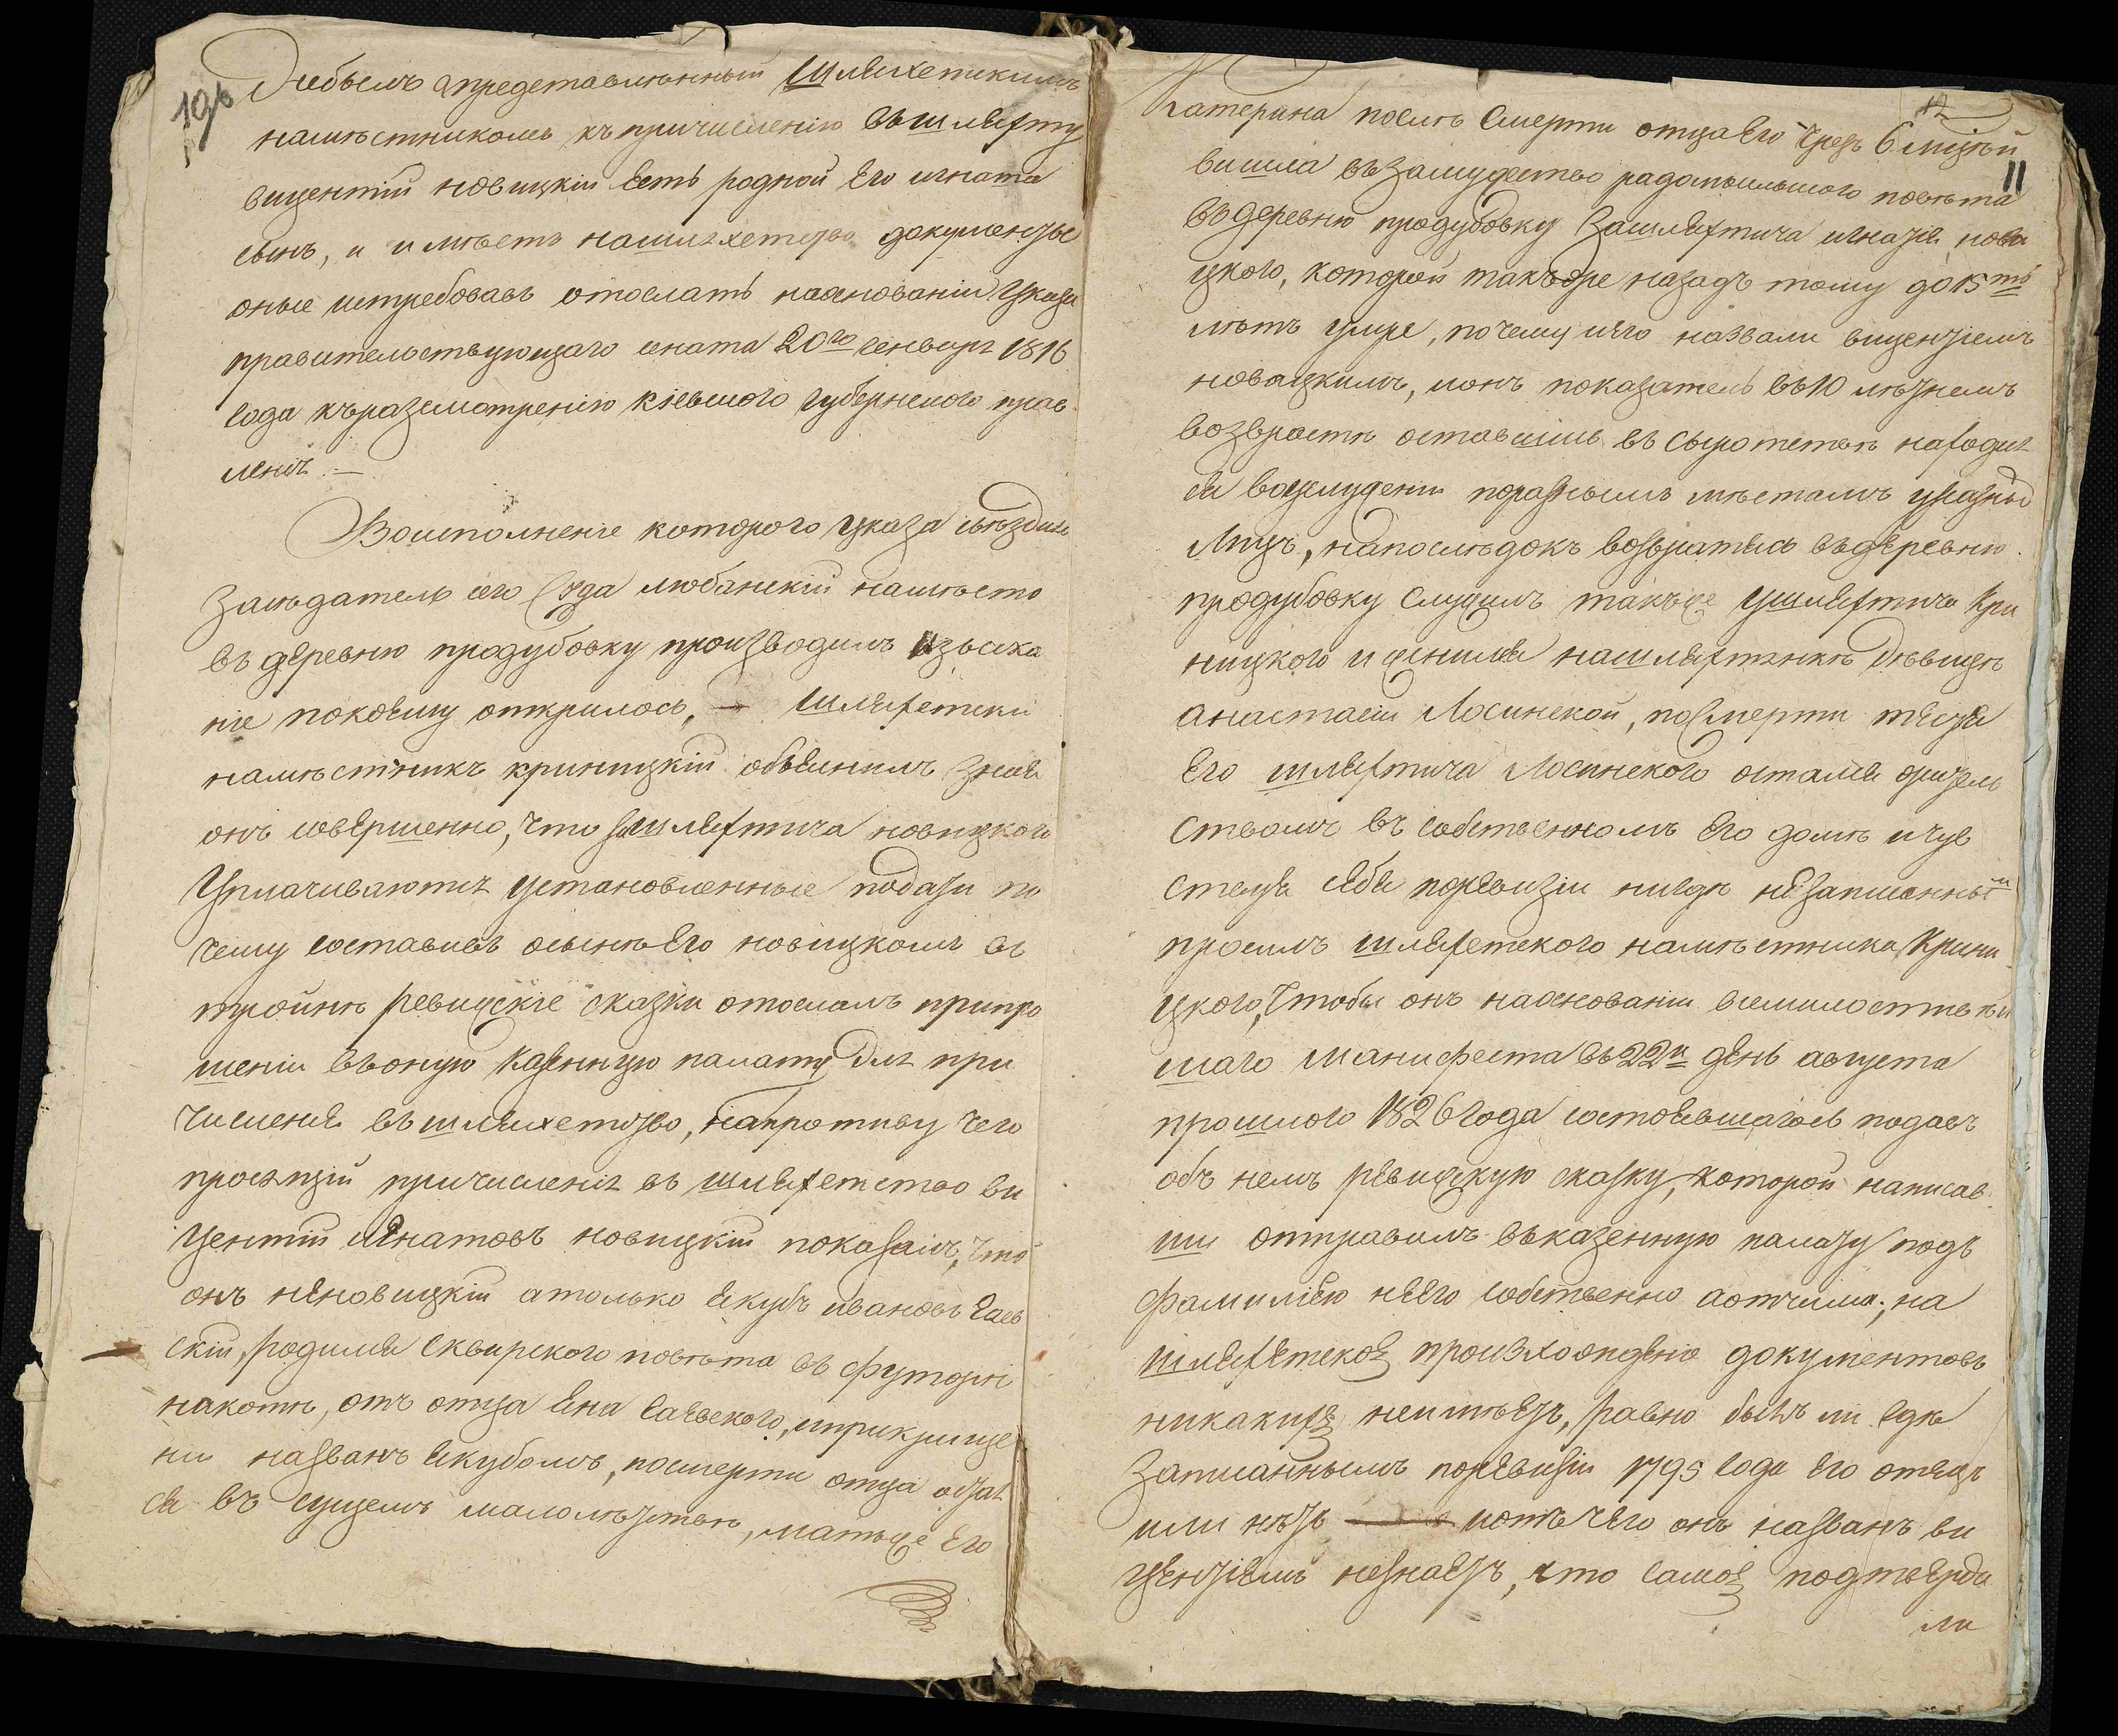 19б
Небылъ апредставленный шляхетскимъ
намѣстникомъ къ причисленію въ шляхту
вицентій новицкій есть родной Его игната
сынъ, и имѣетъ на шляхетство документы
оные истребовавъ отослать на основаніи Указа
правительствующаго сената 20го генваря 1816
года къ разсмотренію кіевского губернского прав
ленія. —
Во исполненіе которого указа
засѣдатель сего суда любанскій на мѣсто
въ деревню продубовку производилъ изыска
ніе по коему открилось, — шляхетски
намѣстникъ криницкій объяснилъ зная
онъ совершенно, что за шляхтича новицкого
Уплачиваются установленные подати по
чему составивъ о сынѣ Его новицкомъ въ
тройнѣ ревизскіе сказки отослалъ при про
шеніи въ оную казенную палату для при
численія въ шляхетство, на противу чего
просящій причисленія въ шляхетство ви
центій игнатовъ новицкій показалъ, что
онъ не новицкій а только Якубъ ивановъ Саев
скій, родился Сквирского повѣта въ футорѣ
накотѣ, отъ отца Яна Саевского, и при креще
ніи названъ Якубомъ, по смерти отца остал
ся въ сущемъ малолѣтствѣ, мать же Его
12
11
Катерина послѣ Смерти отца Его чрезъ 6 мцѣй
вишла въ замужство радомысльского повѣта
въ деревню продубовку за шляхтича игнатія нови
цкого, которой такъ же назадъ тому до 15тъ
лѣтъ умре, почему и его назвали вицентіемъ
новицкимъ, и онъ показатель въ 10 лѣтнемъ
возврастѣ оставшись въ сыротствѣ находил
ся во услуженіи по разнымъ мѣстамъ у разныхъ
лицъ, на послѣдокъ возвратясь въ деревню
продубовку Служилъ такъ же у шляхтича Кри
ницкого и женился на шляхтянкѣ дѣвицѣ
анастасіи Лосинской, по смерти тестя
Его шляхтича Лосинского остался жител
ствомъ въ собственномъ Его домѣ и чув
ствуя себя по ревизіи нигдѣ не записанный
просилъ шляхетского намѣстника Крини
цкого, чтобы онъ на основаніи всемилостивѣй
шаго манифеста въ 22й день августа
прошлого 1826 года состоявшагось подавъ
объ немъ ревизскую сказку, которой написав
ши отправилъ въ казенную палату подъ
фамиліею не его собственно а отчима; на
шляхетское произхожденіе документовъ
никакихъ не имѣетъ, равно былъ ли гдѣ
записаннымъ по ревизіи 1795 года его отецъ
или нѣтъ и отъ чего онъ названъ ви
центіемъ не знаетъ, что самое подтверди
ли